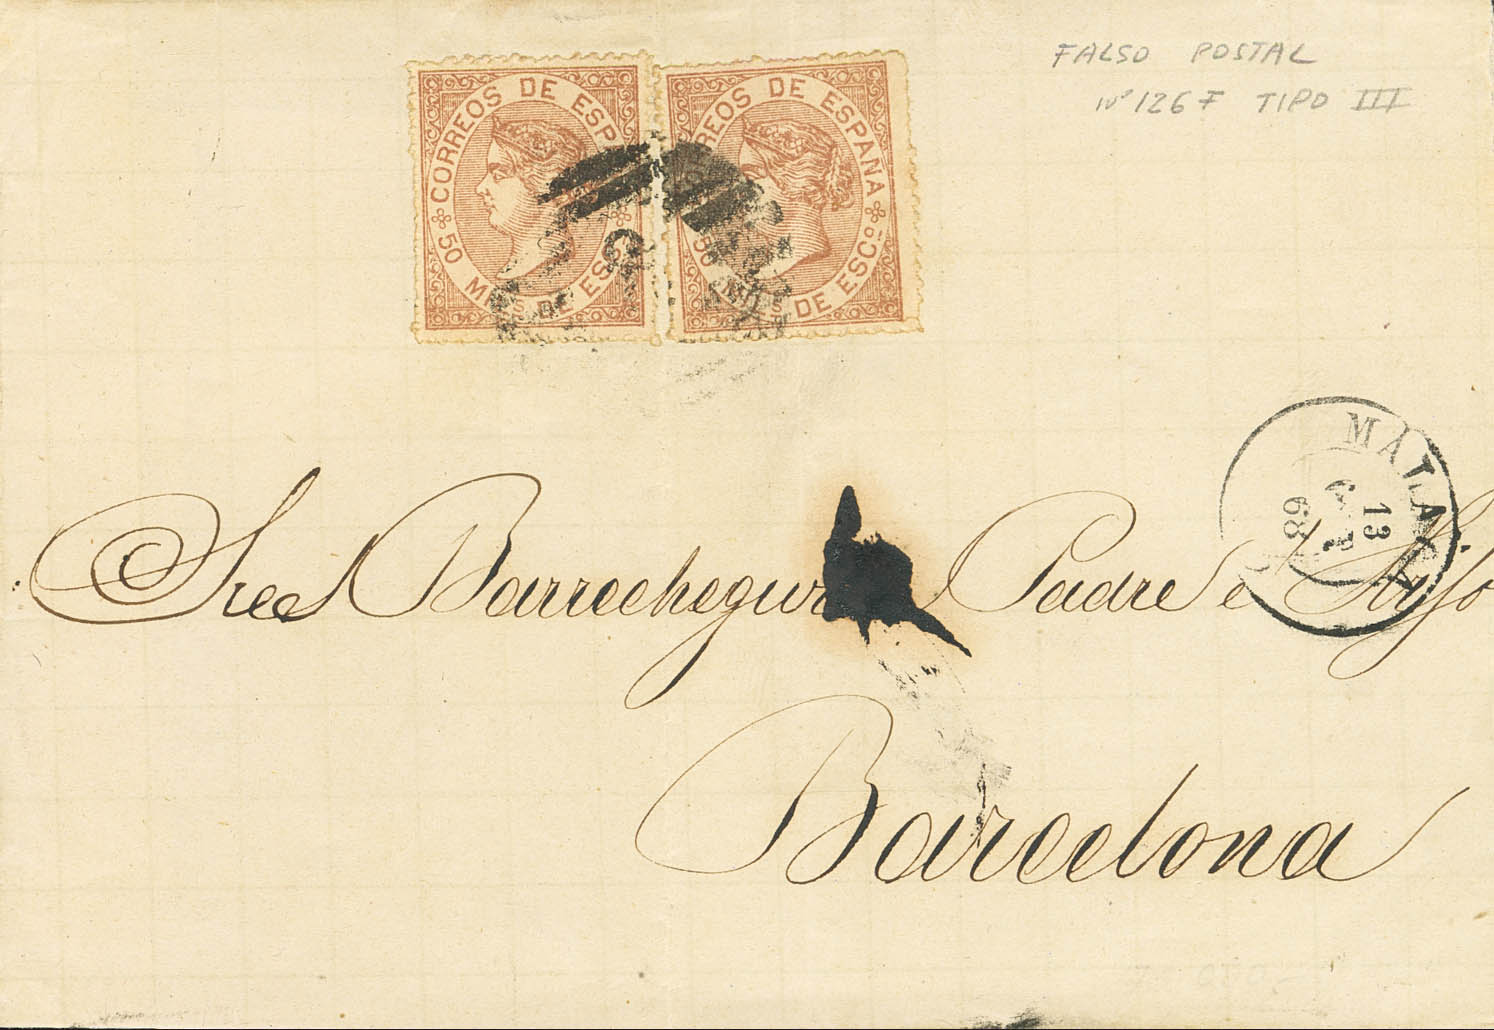 FALSO POSTAL
Nº 126 F TIPO III
CORREOS DE ESP
50 MILS DE ESC
REOS DE ESPAÑA
50 MILS DE ESCº
MALAGA
13
68
Sres Barrechegur Padre e Hijo
Barcelona